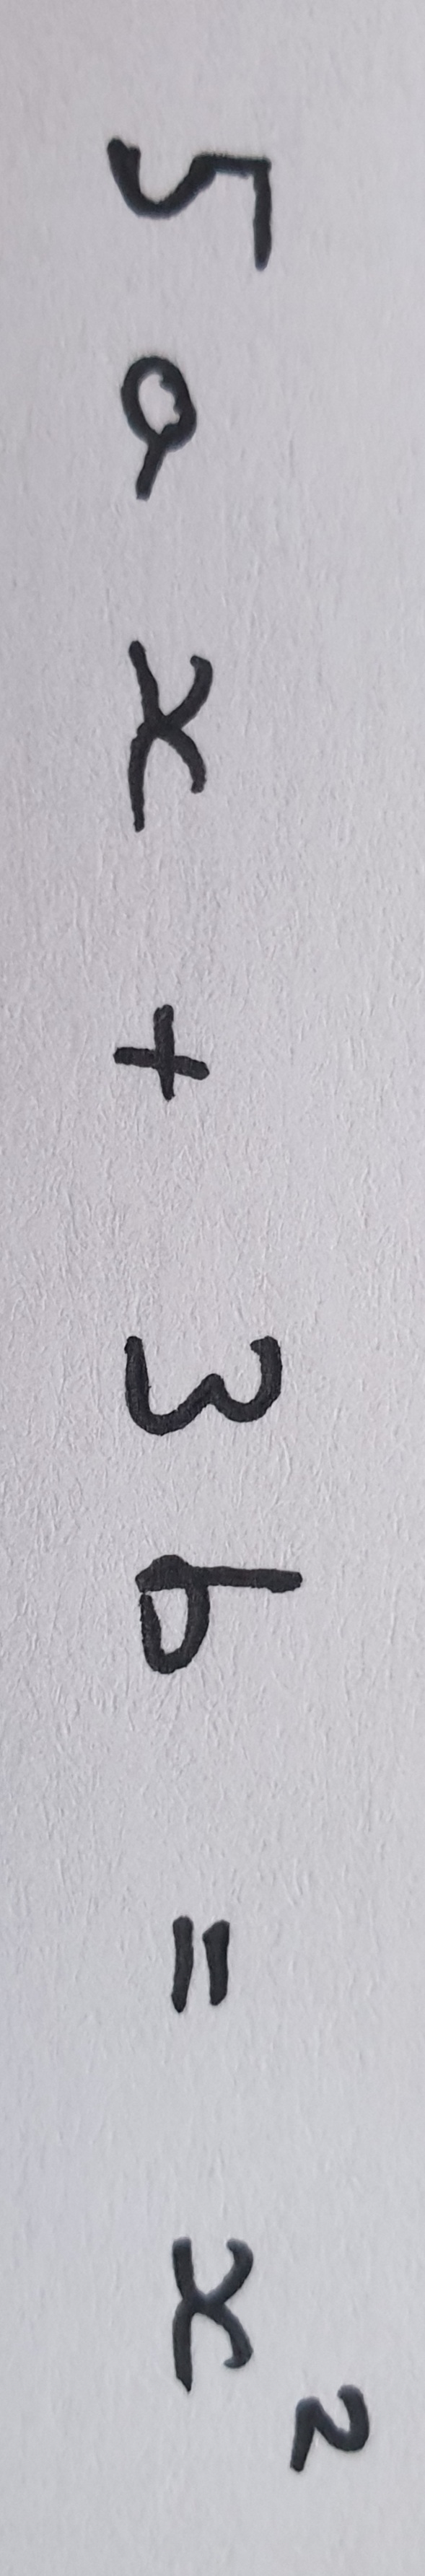 5ax + 3b = x²